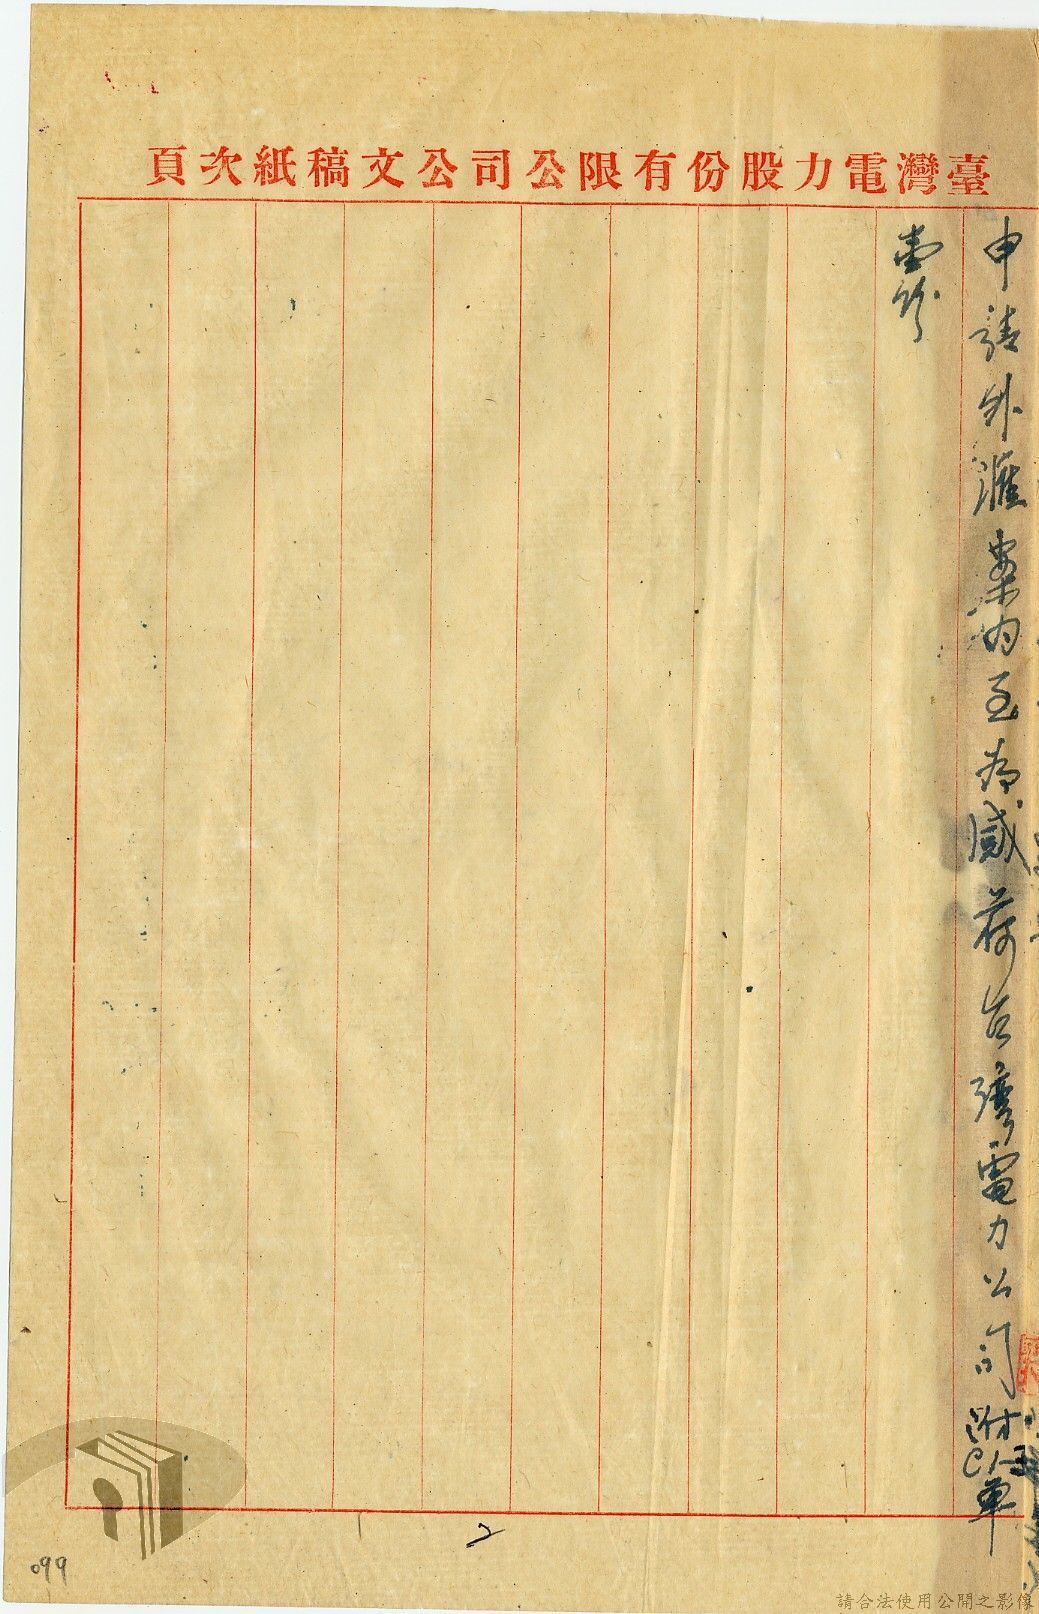 臺灣電力股份有限公司公文稿紙次頁
申請外滙案內至為感荷台灣電力公司附
單
壹份
2
099
請合法使用公開之影像